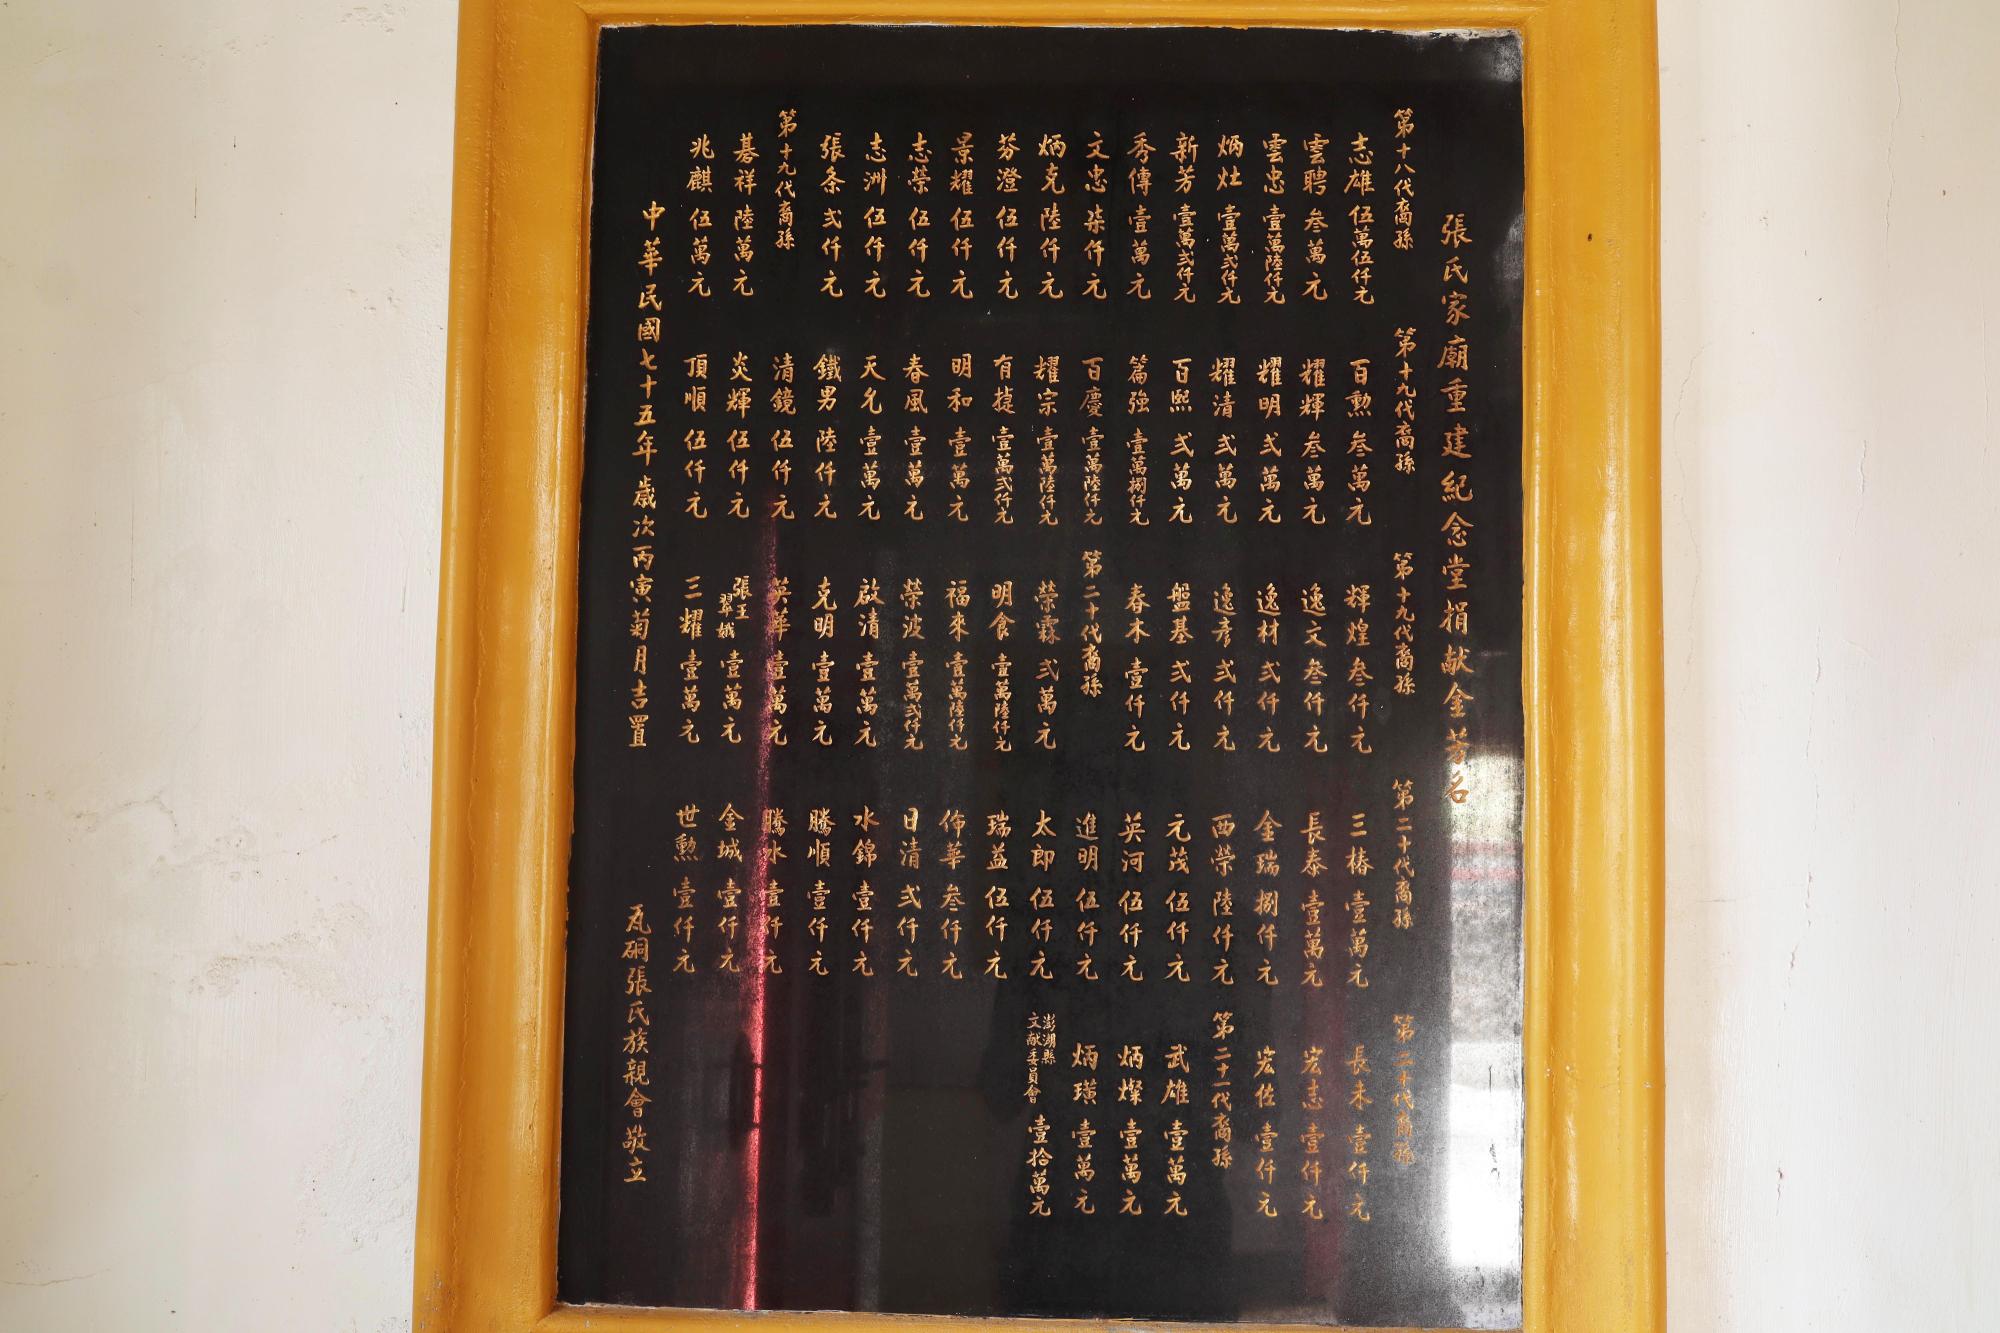 張氏家廟重建紀念堂捐献金芳名
第十八代裔孫
志雄 伍萬伍仟元
雲聘 叁萬元
雲忠 壹萬陸仟元
炳灶 壹萬弍仟元
新芳 壹萬弍仟元
秀傳 壹萬元
文忠 柒仟元
炳克 陸仟元
芬澄 伍仟元
景耀 伍仟元
志榮 伍仟元
志洲 伍仟元
張条 弍仟元
第十九代裔孫
碁祥 陸萬元
兆麒 伍萬元
第十九代裔孫
百勲 叁萬元
耀輝 叁萬元
耀明 弍萬元
耀清 弍萬元
百熙 弍萬元
篇強 壹萬捌仟元
百慶 壹萬陸仟元
耀宗 壹萬陸仟元
有㨗 壹萬弍仟元
明和 壹萬元
春風 壹萬元
天允 壹萬元
鐵男 陸仟元
清鏡 伍仟元
炎輝 伍仟元
頂順 伍仟元
第十九代裔孫
輝煌 叁仟元
逸文 叁仟元
逸材 弍仟元
逸彥 弍仟元
盤基 弍仟元
春木 壹仟元
第二十代裔孫
榮霖 弍萬元
明食 壹萬陸仟元
福來 壹萬陸仟元
榮波 壹萬弍仟元
啟清 壹萬元
克明 壹萬元
英華 壹萬元
張王翠娥 壹萬元
三耀 壹萬元
第二十代裔孫
三椿 壹萬元
長泰 壹萬元
金瑞 捌仟元
西榮 陸仟元
元茂 伍仟元
英河 伍仟元
進明 伍仟元
太郎 伍仟元
瑞益 伍仟元
伂華 叁仟元
日清 弍仟元
水錦 壹仟元
騰順 壹仟元
騰水 壹仟元
金城 壹仟元
世勲 壹仟元
第二十代裔孫
長未 壹仟元
宏志 壹仟元
宏佐 壹仟元
第二十一代裔孫
武雄 壹萬元
炳燦 壹萬元
炳璜 壹萬元
澎湖縣文献委員會 壹拾萬元
中華民國七十五年歲次丙寅菊月吉置
瓦硐張氏族親會敬立